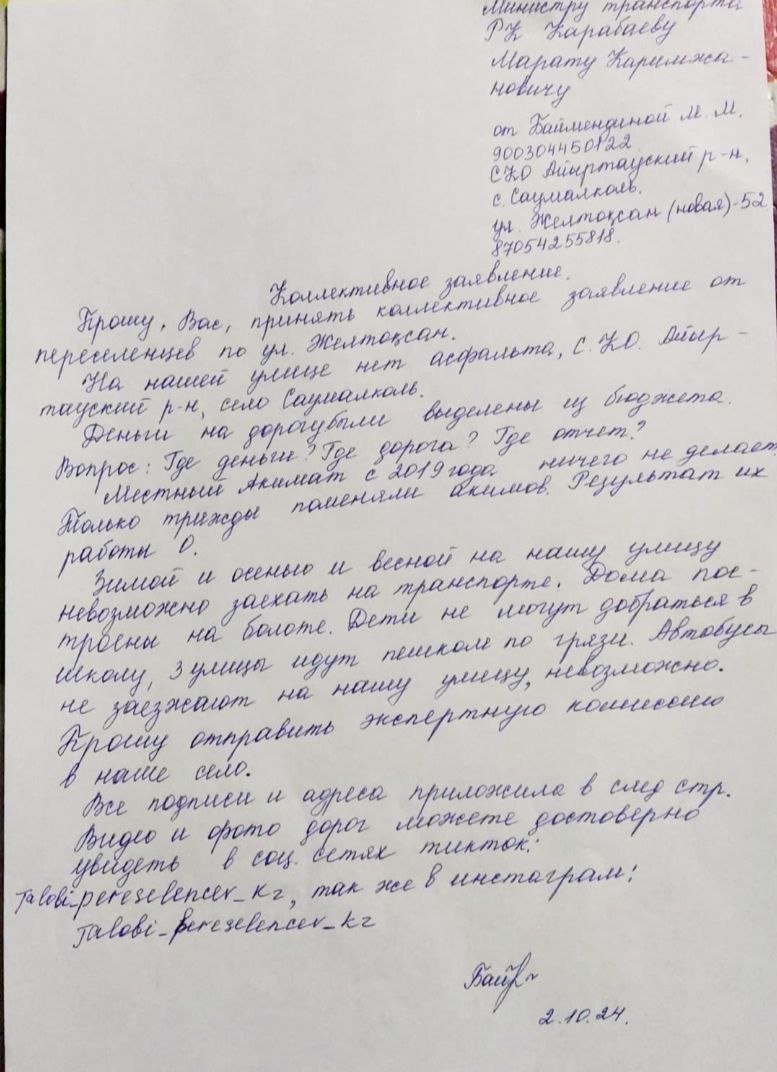 Министру транспорта
РК Карабаеву
Марату Каримжа-
новичу
от Баймендиной М. М.
900304450122
СКО Айыртауский р-н,
с. Саумалколь.
ул. Желтоқсан (новая)-52
87054255818.
Коллективное заявление.
Прошу, Вас, принять коллективное заявление от
переселенцев по ул. Желтоқсан.
На нашей улице нет асфальта, С.КО. Айыр-
тауский р-н, село Саумалколь.
Деньги на дорогу были выделены из бюджета.
Вопрос: Где деньги? Где дорога? Где отчет?
Местный Акимат с 2019 года ничего не делает,
Только трижды поменяли акимов. Результат их
работы 0.
Зимой и осенью и весной на нашу улицу
невозможно заехать на транспорте. Дома пос-
троены на болоте. Дети не могут добраться в
школу, 3 улицы идут пешком по грязи. Автобусы
не заезжают на нашу улицу, невозможно.
Прошу отправить экспертную комиссию
в наше село.
Все подписи и адреса приложила в след стр.
Видео и фото дорог можете достоверно
увидеть в соц. сетях тикток:
Jalobi_pereselencev_kz, так же в инстаграм:
Jalobi_pereselencev_kz
2.10.24.